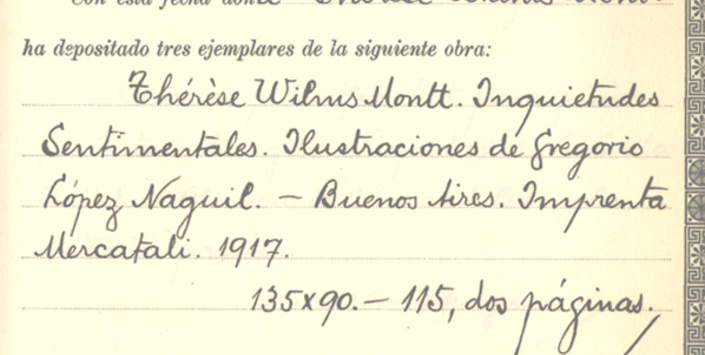 Con esta fecha
ha depositado tres ejemplares de la siguiente obra:
Thérèse Wilms Montt. Inquietudes
Sentimentales. Ilustraciones de Gregorio
López Naguil. — Buenos Aires. Imprenta
Mercatali. 1917.
135x90. — 115, dos páginas.